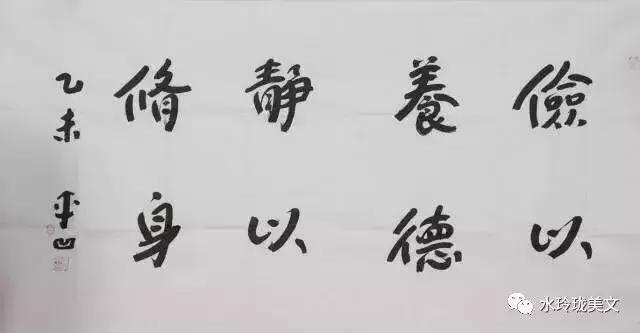 儉以
養德
靜以
脩身
乙未 平凹
水玲珑美文